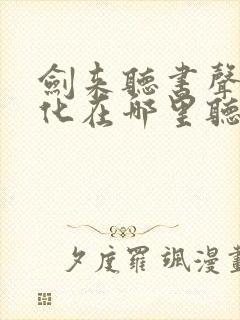 劍来聽書聲
化在哪里聽
夕度羅颯漫畫